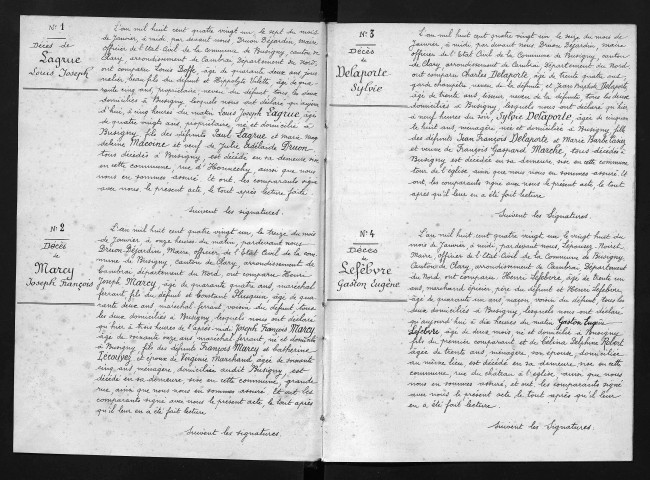 N° 1
Décès de
Lagrue
Louis Joseph
L'an mil huit cent quatre vingt un, le sept du mois
de Janvier, à midi par devant nous, Druon Béjardin, maire
officier de l'Etat Civil de la Commune de Busigny, canton
de Clary, arrondissement de Cambrai, Département du Nord,
ont comparu Louis âgé de quarante deux ans, jour
nalier, beau fils du défunt et Hippolyte Valette âgé de qua
rante cinq ans, propriétaire, neveu du défunt, tous les deux
domiciliés à Busigny, lesquels nous ont déclaré qu'aujour
d'hui, à cinq heures du matin Louis Joseph Lagrue, âgé
de quatre vingts ans, propriétaire, né et domicilié à
Busigny, fils des défunts Paul Lagrue et Marie Mag
deleine Macoine et veuf de Julie Adélaïde Druon
tous décédés à Busigny, est décédé en sa demeure sise
en cette commune, rue d'Honnechy, ainsi que nous
nous en sommes assuré. Et ont, les comparants signé
avec nous, le présent acte, le tout après lecture faite.
Suivent les signatures.
N° 2
Décès
de
Marcy
Joseph François
L'an mil huit cent quatre vingt un, le treize du mois
de Janvier, à onze heures du matin, pardevant nous
Druon Béjardin, Maire, officier de l'Etat Civil de la com
mune de Busigny, canton de Clary, arrondissement de
Cambrai département du Nord, ont comparu Henri
Joseph Marcy, âgé de quarante quatre ans, maréchal
ferrant, fils du défunt et Constant âgé de qua
rante deux ans maréchal ferrant, voisin du défunt, tous
les deux domiciliés à Busigny lesquels nous ont déclaré
qu'hier à trois heures de l'après midi, Joseph François Marcy
âgé de soixante onze ans, maréchal ferrant, né et domicilié
à Busigny, fils des défunts François Marcy et Catherine
Lécouvez, et époux de Virginie Marchand âgée de soixante
cinq ans, ménagère, domiciliée audit Busigny, est
décédé en sa demeure, sise en cette commune, grande
rue, ainsi que nous nous en sommes assuré. Et ont les
comparants signé avec nous le présent acte, le tout après
qu'il leur en a été fait lecture.
Suivent les signatures.
N° 3
Décès
Delaporte
Sylvie
L'an mil huit cent quatre vingt un, le seize du mois de
Janvier, à midi, par devant nous Druon Béjardin, maire
officier de l'Etat Civil de la Commune de Busigny, canton
de Clary, arrondissement de Cambrai Département du Nord,
ont comparu Charles Delaporte, âgé de trente quatre ans,
garde champêtre, neveu de la défunte et Jean Baptiste Delaporte
âgé de trente ans, tisseur, neveu de la défunte, tous les deux
domiciliés à Busigny, lesquels nous ont déclaré qu'hier
à neuf heures du soir, Sylvie Delaporte, âgée de cinquan
te huit ans, ménagère, née et domiciliée à Busigny, fille
des défunts Jean François Delaporte et Marie Barbe
et veuve de François Gaspard Marche, tous décédés à
Busigny est décédée en sa demeure, sise en cette commune
ainsi que nous nous en sommes assuré. Et
ont, les comparants signé avec nous, le présent acte, le tout
après qu'il leur en a été fait lecture
Suivent les Signatures.
N° 4
Décès
de
Lefebvre
Gaston Eugène
L'an mil huit cent quatre vingt un, le dix huit du
mois de Janvier, à midi, pardevant nous,
Maire, officier de l'Etat Civil de la Commune de Busigny,
Canton de Clary, arrondissement de Cambrai, Département
du Nord, ont comparu Henri Lefebvre, âgé de trente un
ans, marchand épicier, père du défunt et Henri Lefebvre,
âgé de quarante six ans, maçon, voisin du défunt, tous les
deux domiciliés à Busigny, lesquels nous ont déclaré
qu'aujourd'hui à dix heures du matin Gaston Eugène
Lefebvre âgé de deux mois, né et domicilié à Busigny,
fils du premier comparant et de Céléna Delphine Robert
âgée de trente ans, ménagère, son épouse, domiciliée
au même lieu, est décédé en sa demeure, sise en cette
commune, rue du château à l'église, ainsi que nous
nous en sommes assuré, et ont, les comparants signé
avec nous le présent acte, le tout après qu'il leur
en a été fait lecture.
Suivent les signatures.